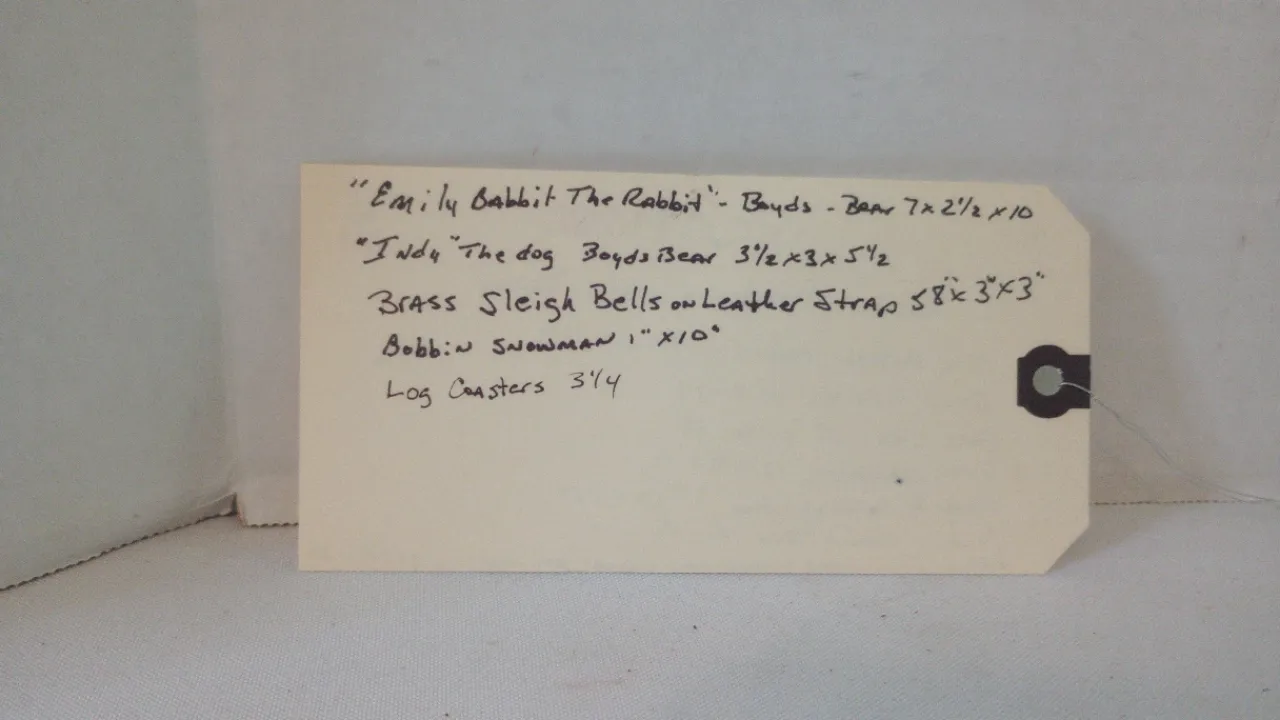 "Emily Babbit The Rabbit" - Boyds - Bear 7 x 2 1/2 x 10
"Indy" The dog Boyds Bear 3 1/2 x 3 x 5 1/2
Brass Sleigh Bells on Leather Strap 58" x 3" x 3"
Bobbin Snowman 1" x 10"
Log Coasters 3 1/4